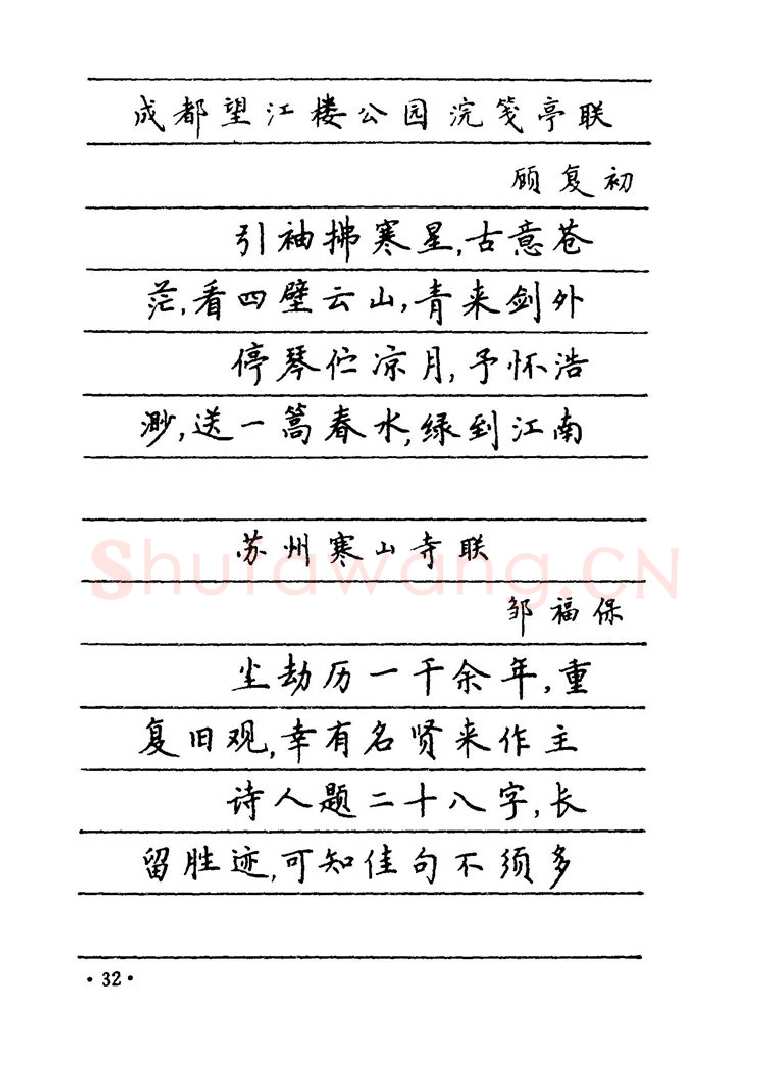 成都望江楼公园浣笺亭联
顾复初
引袖拂寒星,古意苍
茫,看四壁云山,青来剑外
停琴伫凉月,予怀浩
渺,送一篙春水,绿到江南
苏州寒山寺联
shufawang.CN
邹福保
尘劫历一千余年,重
复旧观,幸有名贤来作主
诗人题二十八字,长
留胜迹,可知佳句不须多
·32·